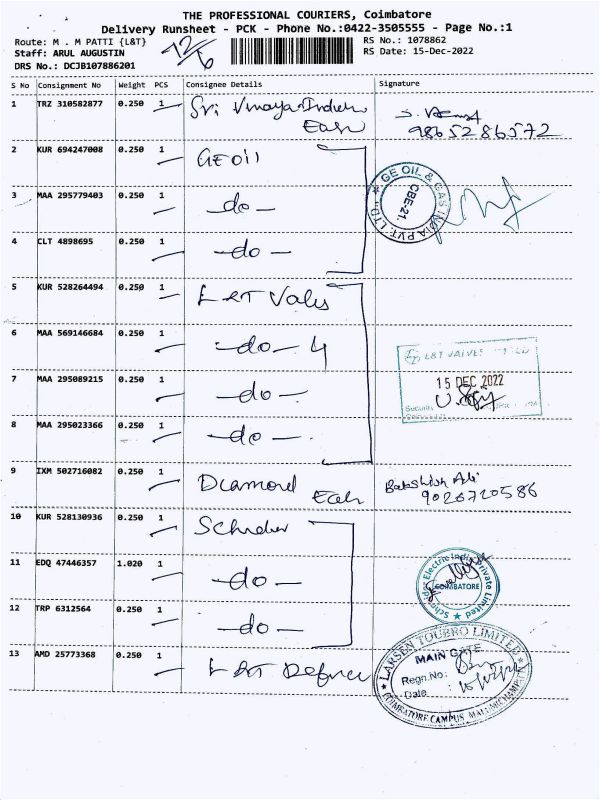 THE PROFESSIONAL COURIERS, Coimbatore
Delivery Runsheet - PCK - Phone No.:0422-3505555 - Page No.:1
Route: M . M PATTI {L&T}
RS No.: 1078862
Staff: ARUL AUGUSTIN
RS Date: 15-Dec-2022
DRS No.: DCJB107886201
12/6
S No Consignment No Weight PCS Consignee Details Signature
1 TRZ 310582877 0.250 1 Sri
9865286572
2 KUR 694247008 0.250 1 GE Oil
GE OIL & GAS INDIA PVT. LTD.,
CBE-21.
3 MAA 295779403 0.250 1 -do-
4 CLT 4898695 0.250 1 -do-
5 KUR 528264494 0.250 1 L&T Valves
6 MAA 569146684 0.250 1 -do- 4
L&T VALVES LIMITED
7 MAA 295089215 0.250 1 -do-
15 DEC 2022
Security
8 MAA 295023366 0.250 1 -do-
9 IXM 502716082 0.250 1 Diamond
9026720586
10 KUR 528130936 0.250 1
11 EDQ 47446357 1.020 1 -do-
Electric India Private Limited
COIMBATORE
12 TRP 6312564 0.250 1 -do-
13 AMD 25773368 0.250 1 L&T Defence
LARSEN TOUBRO LIMITED
MAIN GATE
Regn.No:
Date :
COIMBATORE CAMPUS